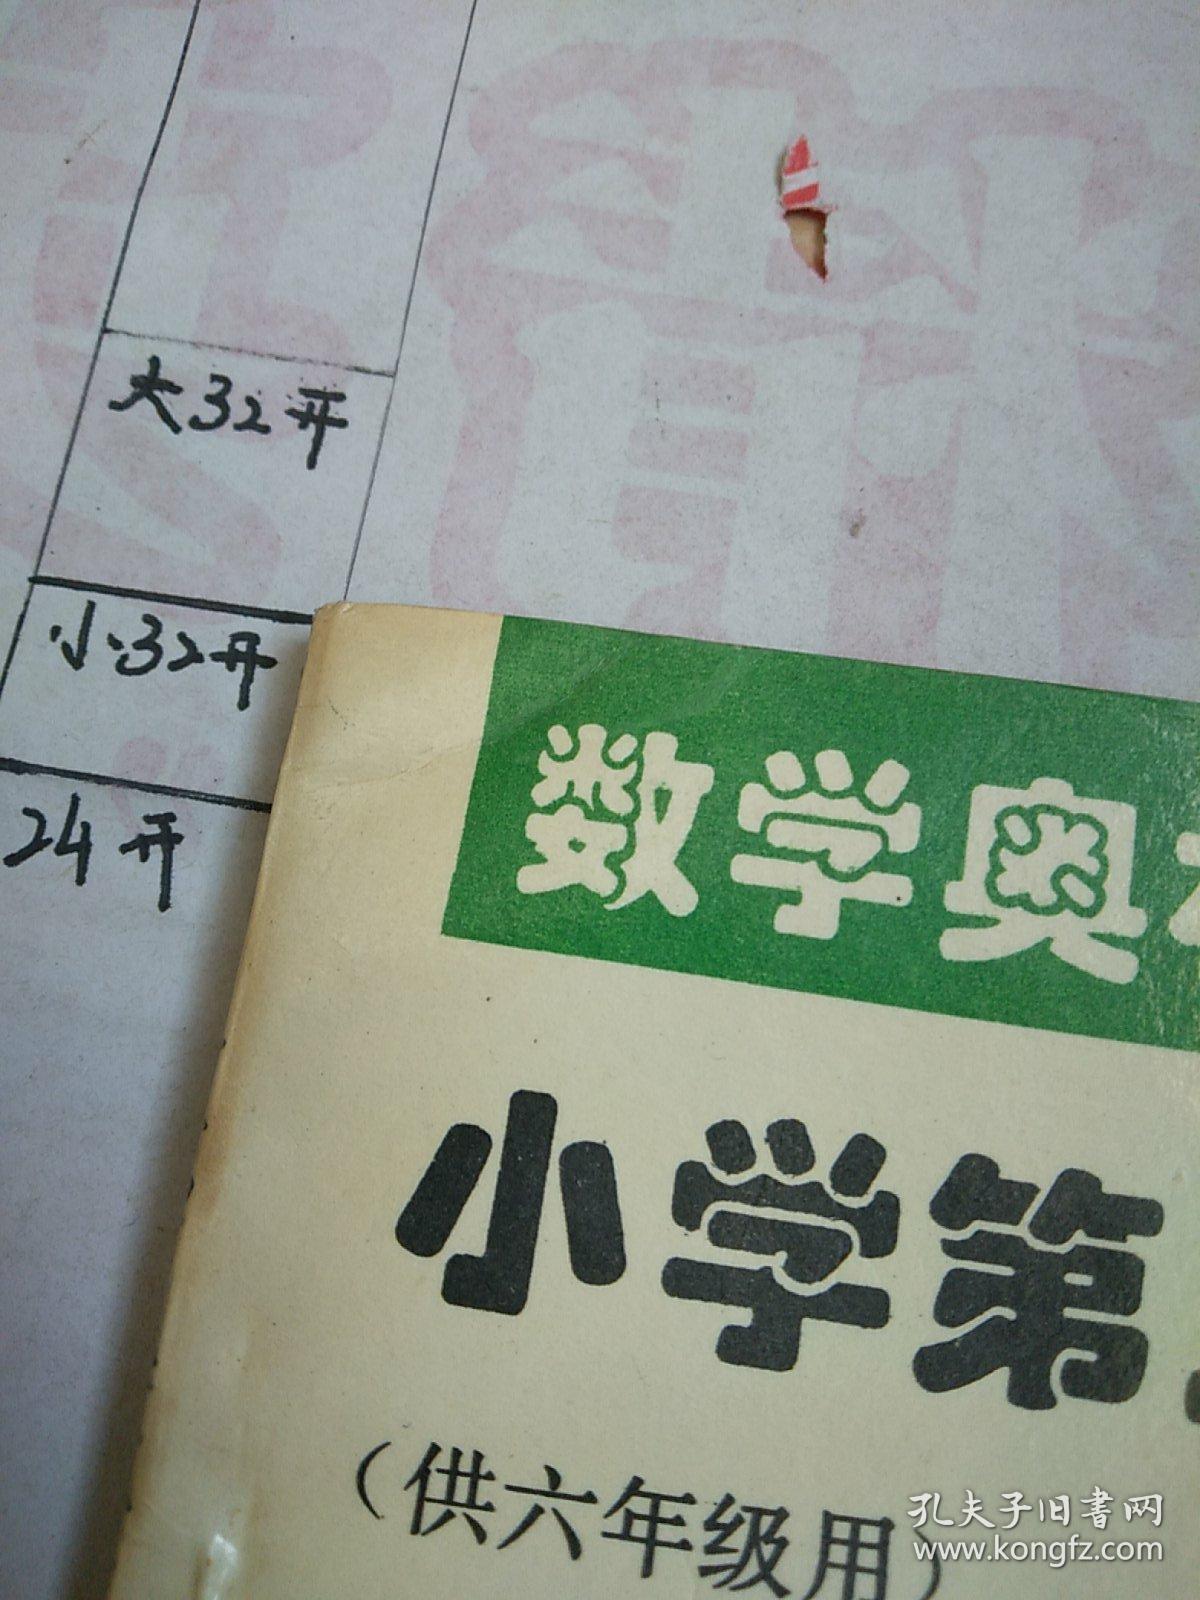 大32开
小32开
24开
数学奥
小学第
（供六年级用）
孔夫子旧书网
www.kongfz.com